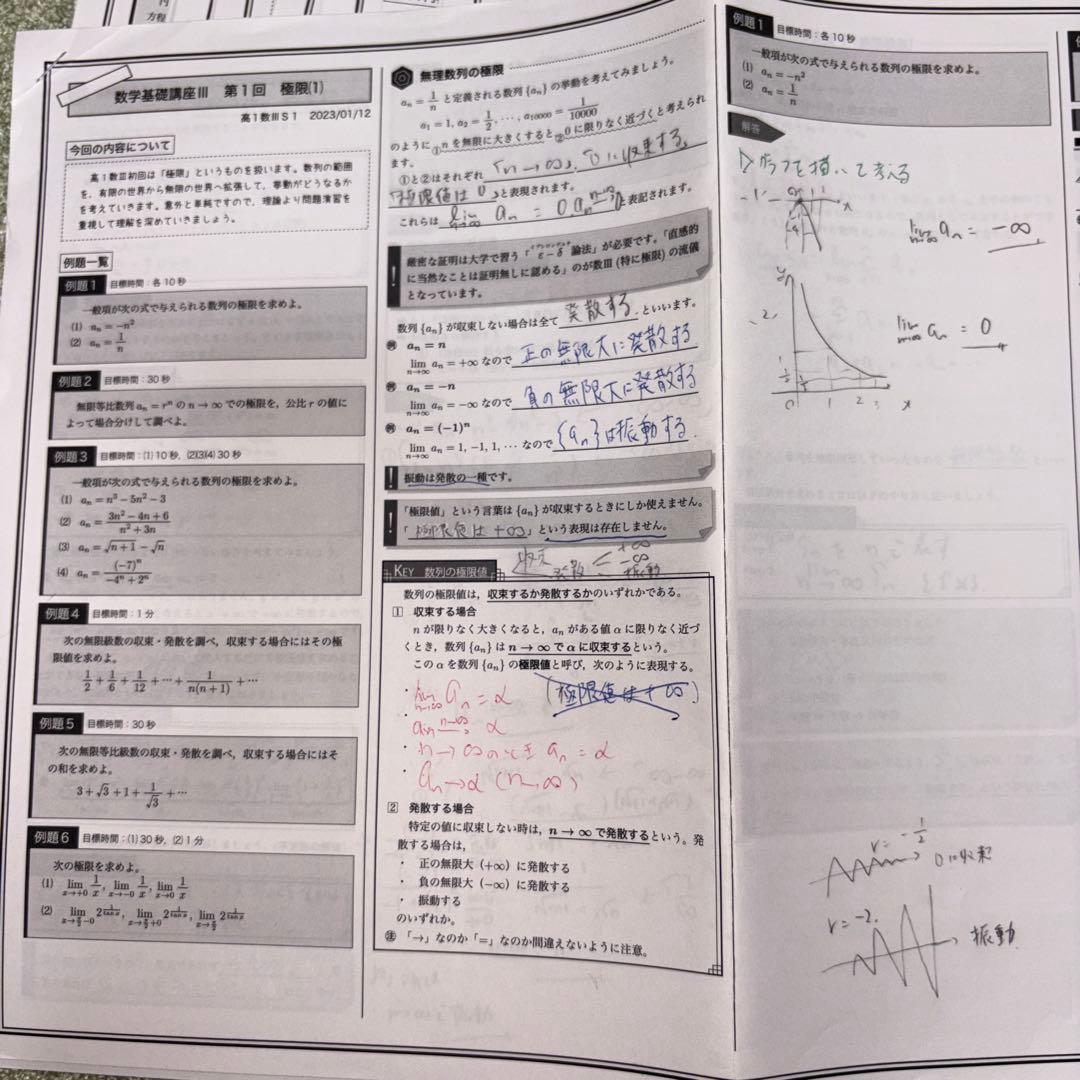 方程
数学基礎講座Ⅲ 第1回 極限(1)
高1数ⅢS1 2023/01/12
今回の内容について
高1数Ⅲ初回は「極限」というものを扱います。数列の範囲
を、有限の世界から無限の世界へ拡張して、挙動がどうなるか
を考えていきます。意外と単純ですので、理論より問題演習を
重視して理解を深めていきましょう。
例題一覧
例題1 目標時間:各10秒
一般項が次の式で与えられる数列の極限を求めよ。
(1) aₙ = −n²
(2) aₙ = 1/n
例題2 目標時間:30秒
無限等比数列 aₙ = rⁿ の n → ∞ での極限を、公比 r の値に
よって場合分けして調べよ。
例題3 目標時間:(1)10秒, (2)(3)(4)30秒
一般項が次の式で与えられる数列の極限を求めよ。
(1) aₙ = n³ − 5n² − 3
(2) aₙ = (3n² − 4n + 6)/(n² + 3n)
(3) aₙ = √(n+1) − √n
(4) aₙ = (−7)ⁿ/(−4ⁿ + 2ⁿ)
例題4 目標時間:1分
次の無限級数の収束・発散を調べ、収束する場合にはその極
限値を求めよ。
1/2 + 1/6 + 1/12 + ⋯ + 1/n(n+1) + ⋯
例題5 目標時間:30秒
次の無限等比級数の収束・発散を調べ、収束する場合にはそ
の和を求めよ。
3 + √3 + 1 + 1/√3 + ⋯
例題6 目標時間:(1)30秒, (2)1分
次の極限を求めよ。
(1) lim x→+0 1/x, lim x→−0 1/x, lim x→0 1/x
(2) lim x→π/2−0 2^(1/tan x), lim x→π/2+0 2^(1/tan x), lim x→π/2 2^(1/tan x)
無理数列の極限
aₙ = 1/n と定義される数列 {aₙ} の挙動を考えてみましょう。
a₁ = 1, a₂ = 1/2, ⋯, a₁₀₀₀₀ = 1/10000
のように①nを無限に大きくすると②0に限りなく近づくと考えられ
ます。
①と②はそれぞれ「n→∞」、「0に収束する」
「極限値は0」と表現されます。
これらは lim n→∞ aₙ = 0 aₙ n→∞ 0 と表記されます。
! 厳密な証明は大学で習う「ε−δ論法」が必要です。「直感的
に当然なことは証明無しに認める」のが数Ⅲ(特に極限)の流儀
となっています。
数列 {aₙ} が収束しない場合は全て 発散する といいます。
例 aₙ = n
lim n→∞ aₙ = +∞ なので 正の無限大に発散する
例 aₙ = −n
lim n→∞ aₙ = −∞ なので 負の無限大に発散する
例 aₙ = (−1)ⁿ
lim n→∞ aₙ = 1, −1, 1, ⋯ なので {aₙ}は振動する.
! 振動は発散の一種です。
! 「極限値」という言葉は {aₙ} が収束するときにしか使えません。
「極限値は +∞」という表現は存在しません。
収束
発散 < +∞ −∞ 振動
KEY 数列の極限値
数列の極限値は、収束するか発散するかのいずれかである。
1 収束する場合
n が限りなく大きくなると、aₙ がある値 α に限りなく近づ
くとき、数列 {aₙ} は n → ∞ で α に収束するという。
この α を数列 {aₙ} の極限値と呼び、次のように表現する。
・lim n→∞ aₙ = α (極限値は+∞)
・aₙ n→∞ α
・n→∞のとき aₙ = α
・aₙ→α (n→∞)
2 発散する場合
特定の値に収束しない時は、n → ∞ で発散するという。発
散する場合は、
・ 正の無限大(+∞)に発散する
・ 負の無限大(−∞)に発散する
・ 振動する
のいずれか。
注 「→」なのか「=」なのか間違えないように注意。
例題1 目標時間:各10秒
一般項が次の式で与えられる数列の極限を求めよ。
(1) aₙ = −n²
(2) aₙ = 1/n
解答
▷グラフを描いて考える
1.
x
lim n→∞ aₙ = −∞
2.
y
lim n→∞ aₙ = 0
1
0 1 2 3 x
r = −1/2
0に収束
r = −2.
振動.